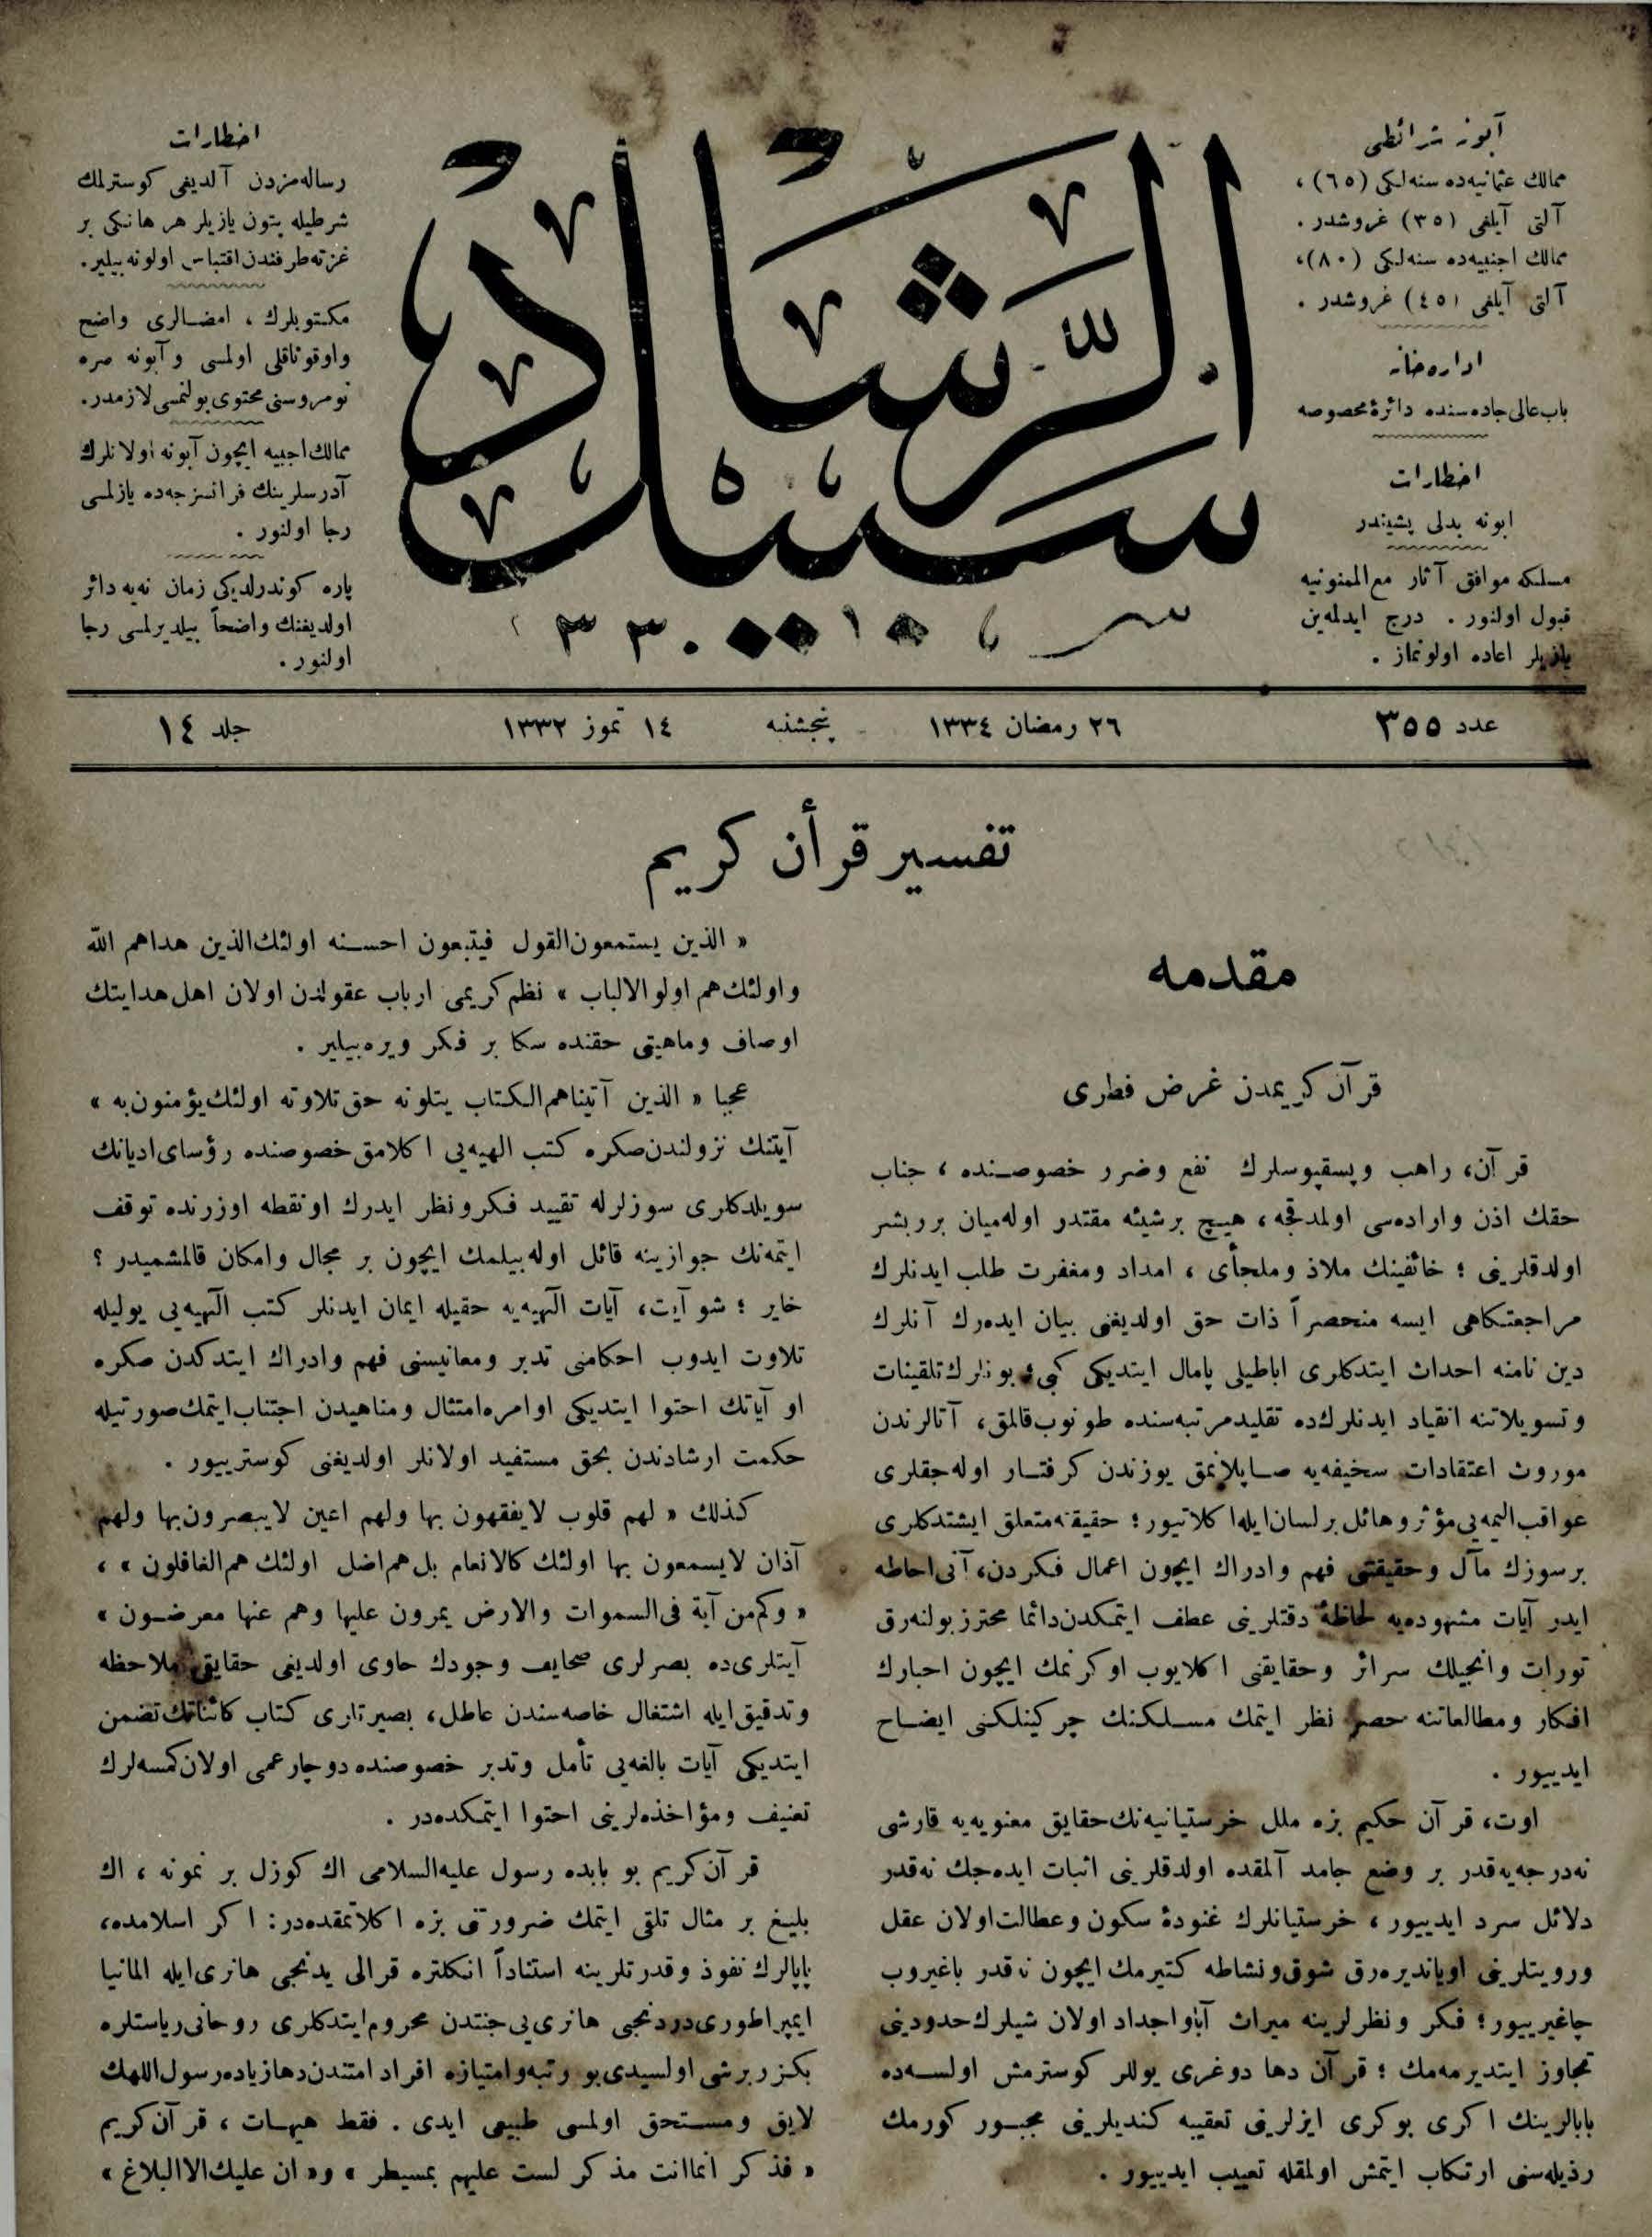 آبونه شرائطى
ممالك عثمانيه‌ده سنه‌لكى (٦٥) ،
آلتى آيلغى (٣٥) غروشدر .
ممالك اجنبيه‌ده سنه‌لكى (٨٠)،
آلتى آيلغى (٤٥) غروشدر .
اداره‌خانه
باب‌عالى‌جاده‌سنده دائرۀ مخصوصه
اخطارات
ابونه بدلى پشيندر
مسلكه موافق آثار مع‌الممنونيه
قبول اولنور . درج ايدلمه‌ين
يازيلر اعاده اولونماز .
سبيل الرشاد
اخطارات
رساله‌مزدن آلديغى كوسترلمك
شرطيله بتون يازيلر هر هانكى بر
غزته‌طرفندن اقتباس اولونه‌بيلير.
مكتوبلرك ، امضالرى واضح
واوقوناقلى اولمسى و آبونه صره
نومروسنى محتوى بولنمسى لازمدر.
ممالك اجنبيه ايچون آبونه اولانلرك
آدرسلرينك فرانسزجه‌ده يازلمسى
رجا اولنور .
پاره كوندرلديكى زمان نه‌يه دائر
اولديغنك واضحاً بيلديرلمسى رجا
اولنور .
عدد ٣٥٥
٢٦ رمضان ١٣٣٤ پنجشنبه ١٤ تموز ١٣٣٢
جلد ١٤
تفسير قرأن كريم
مقدمه
قرآن كريمدن غرض فطرى
قرآن، راهب وپسقپوسلرك نفع وضرر خصوصنده ، جناب
حقك اذن واراده‌سى اولمدقجه، هيچ برشيئه مقتدر اوله‌ميان برربشر
اولدقلرينى ؛ خائفينك ملاذ وملجأى ، امداد ومغفرت طلب ايدنلرك
مراجعتكاهى ايسه منحصراً ذات حق اولديغنى بيان ايده‌رك آنلرك
دين نامنه احداث ايتدكلرى اباطيلى پامال ايتديكى كبى، بونلرك تلقينات
وتسويلاتنه انقياد ايدنلرك‌ده تقليدمرتبه‌سنده طونوب‌قالمق، آتالرندن
موروث اعتقادات سخيفه‌يه صاپلانمق يوزندن كرفتار اوله‌جقلرى
عواقب‌اليمه‌يى‌مؤثر و هائل بر لسان‌ايله‌اكلاتيور ؛ حقيقته‌متعلق ايشتدكلرى
برسوزك مآل وحقيقتنى فهم وادراك ايچون اعمال فكردن، آنى‌احاطه
ايدر آيات مشهوده‌يه لحاظۀ دقتلرينى عطف ايتمكدن‌دائما محترز بولنه‌رق
تورات وانجيلك سرائر وحقايقنى اكلايوب اوكرنمك ايچون احبارك
افكار ومطالعاتنه حصر نظر ايتمك مسلكنك چركينلكنى ايضاح
ايدييور .
اوت، قرآن حكيم بزه ملل خرستيانيه‌نك‌حقايق معنويه‌يه قارشى
نه‌درجه‌يه‌قدر بر وضع جامد آلمقده اولدقلرينى اثبات ايده‌جك نه‌قدر
دلائل سرد ايدييور ، خرستيانلرك غنودۀ سكون وعطالت‌اولان عقل
ورويتلرينى اوياندیره‌رق شوق‌ونشاطه كتيرمك ايچون نه قدر باغيروب
چاغيرييور ؛ فكر ونظرلرينه ميراث آباواجداد اولان شيلرك‌حدودينى
تجاوز ايتديرمه‌مك ؛ قرآن دها دوغرى يوللر كوسترمش اولسه‌ده
بابالرينك اكرى بوكرى ايزلرينى تعقيبه كنديلرينى مجبور كورمك
رذيله‌سنى ارتكاب ايتمش اولمقله تعييب ايدييور .
« الذين يستمعون‌القول فيتبعون احسنه اولئك‌الذين هداهم الله
واولئك‌هم اولوالالباب » نظم‌كريمى ارباب عقولدن اولان اهل‌هدايتك
اوصاف وماهيتى حقنده سكا بر فكر ويره‌بيلير .
عجبا « الذين آتيناهم‌الكتاب يتلونه حق‌تلاوته اولئك‌يؤمنون‌به »
آيتنك نزولندن‌صكره كتب الهيه‌يى اكلامق‌خصوصنده رؤساى‌اديانك
سويلدكلرى سوزلرله تقييد فكرونظر ايدرك اونقطه اوزرنده توقف
ايتمه‌نك جوازينه قائل اوله‌بيلمك ايچون بر مجال وامكان قالمشميدر ؟
خاير ؛ شو آيت، آيات الهيه‌يه حقيله ايمان ايدنلر كتب الهيه‌يى يوليله
تلاوت ايدوب احكامنى تدبر ومعانيسنى فهم وادراك ايتدكدن صكره
او آياتك احتوا ايتديكى اوامره‌امتثال ومناهيدن اجتناب‌ايتمك‌صورتيله
حكمت ارشادندن بحق مستفيد اولانلر اولديغنى كوسترييور .
كذلك « لهم قلوب لايفقهون بها ولهم اعين لايبصرون‌بها ولهم
آذان لايسمعون بها اولئك كالانعام بل‌هم‌اضل اولئك هم‌الغافلون » ،
« وكم‌من آية فى‌السموات والارض يمرون عليها وهم عنها معرضون »
آيتلرى‌ده بصرلرى صحايف وجودك حاوى اولديغى حقايقى ملاحظه
وتدقيق‌ايله اشتغال خاصه‌سندن عاطل، بصيرتلرى كتاب كائناتك‌تضمن
ايتديكى آيات بالغه‌يى تأمل وتدبر خصوصنده دوچار عمى اولان‌كمسه‌لرك
تعنيف ومؤاخذه‌لرينى احتوا ايتمكده‌در .
قرآن‌كريم بو بابده رسول عليه‌السلامى اك كوزل بر نمونه ، اك
بليغ بر مثال تلقى ايتمك ضرورتى بزه اكلاتمقده‌در: اكر اسلامده،
پاپالرك نفوذ وقدرتلرينه استناداً انكلتره قرالى يدنجى هانرى‌ايله المانيا
ايمپراطورى‌دردنجى هانرى‌يى‌جنتدن محروم‌ايتدكلرى روحانى‌رياستلره
بكزر برشى اولسيدى‌بو رتبه‌وامتيازه افراد امتندن‌دهازياده‌رسول‌اللهك
لايق ومستحق اولمسى طبيعى ايدى . فقط هيهات ، قرآن‌كريم
« فذكر انماانت مذكر لست عليهم بمسيطر » و« ان عليك‌الاالبلاغ »